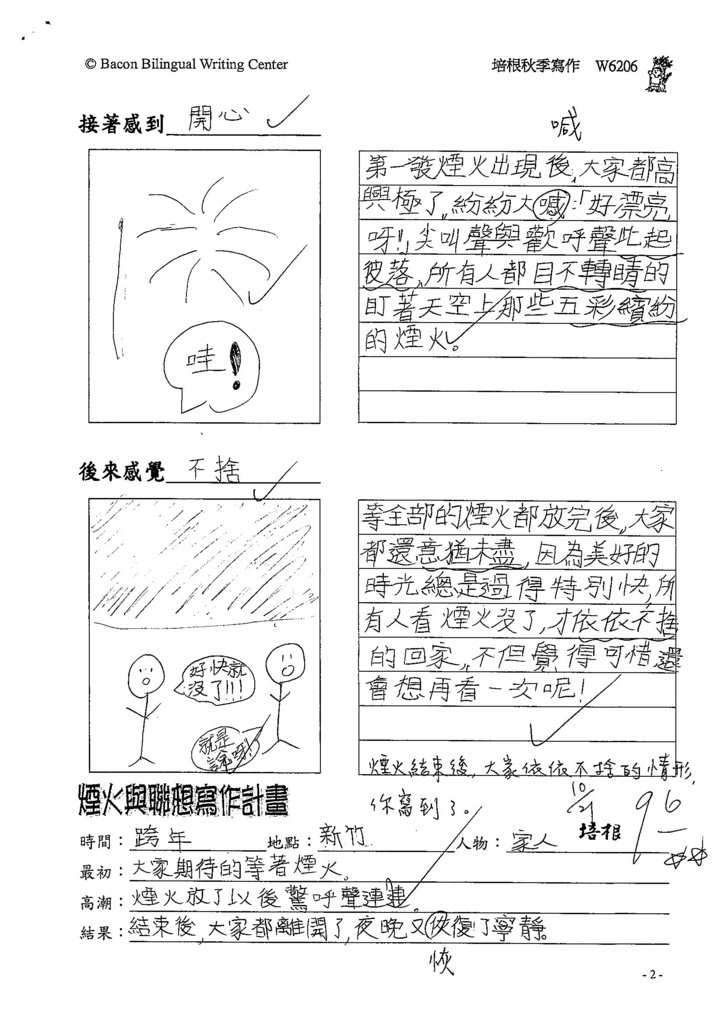 © Bacon Bilingual Writing Center
培根秋季寫作 W6206
接著感到 開心
哇!
喊
第一發煙火出現後,大家都高
興極了,紛紛大喊:「好漂亮
呀!」尖叫聲與歡呼聲此起
彼落,所有人都目不轉睛的
盯著天空上那些五彩繽紛
的煙火。
後來感覺 不捨
好快就
沒了!!!
就是
說呀!
等全部的煙火都放完後,大家
都還意猶未盡,因為美好的
時光總是過得特別快,所
有人看煙火沒了,才依依不捨
的回家,不但覺得可惜還
會想再看一次呢!
煙火結束後,大家依依不捨的情形,
你寫到了。
10/21
培根
96
煙火與聯想寫作計畫
時間:跨年 地點:新竹 人物:家人
最初:大家期待的等著煙火。
高潮:煙火放了以後驚呼聲連連。
結果:結束後,大家都離開了,夜晚又恢復了寧靜。
恢
- 2 -